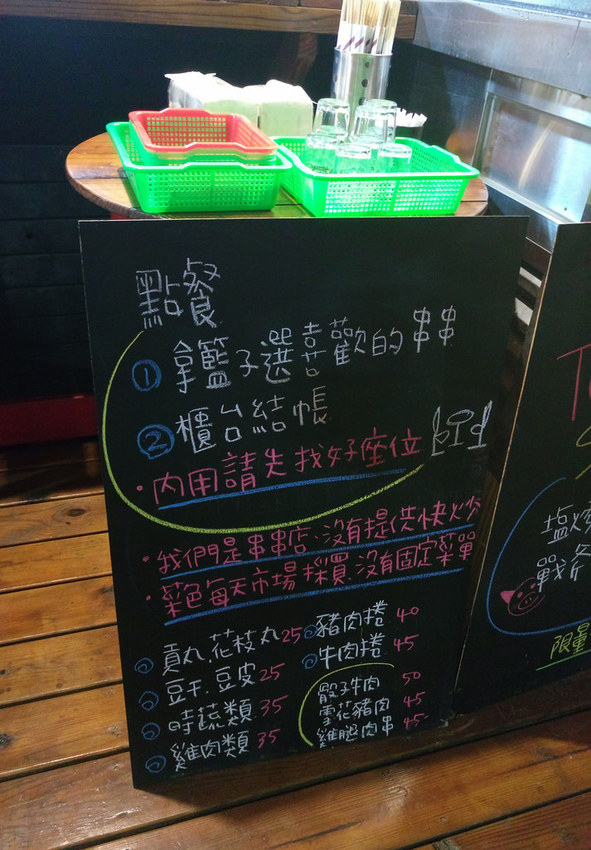 點餐
① 拿籃子選喜歡的串串
② 櫃台結帳
・內用請先找好座位
・我們是串串店、沒有提供快炒
・菜色每天市場採買、沒有固定菜單
貢丸、花枝丸 25
豆干、豆皮 25
時蔬類 35
雞肉類 35
豬肉捲 40
牛肉捲 45
骰子牛肉 50
雪花豬肉 45
雞腿肉串 45
限量